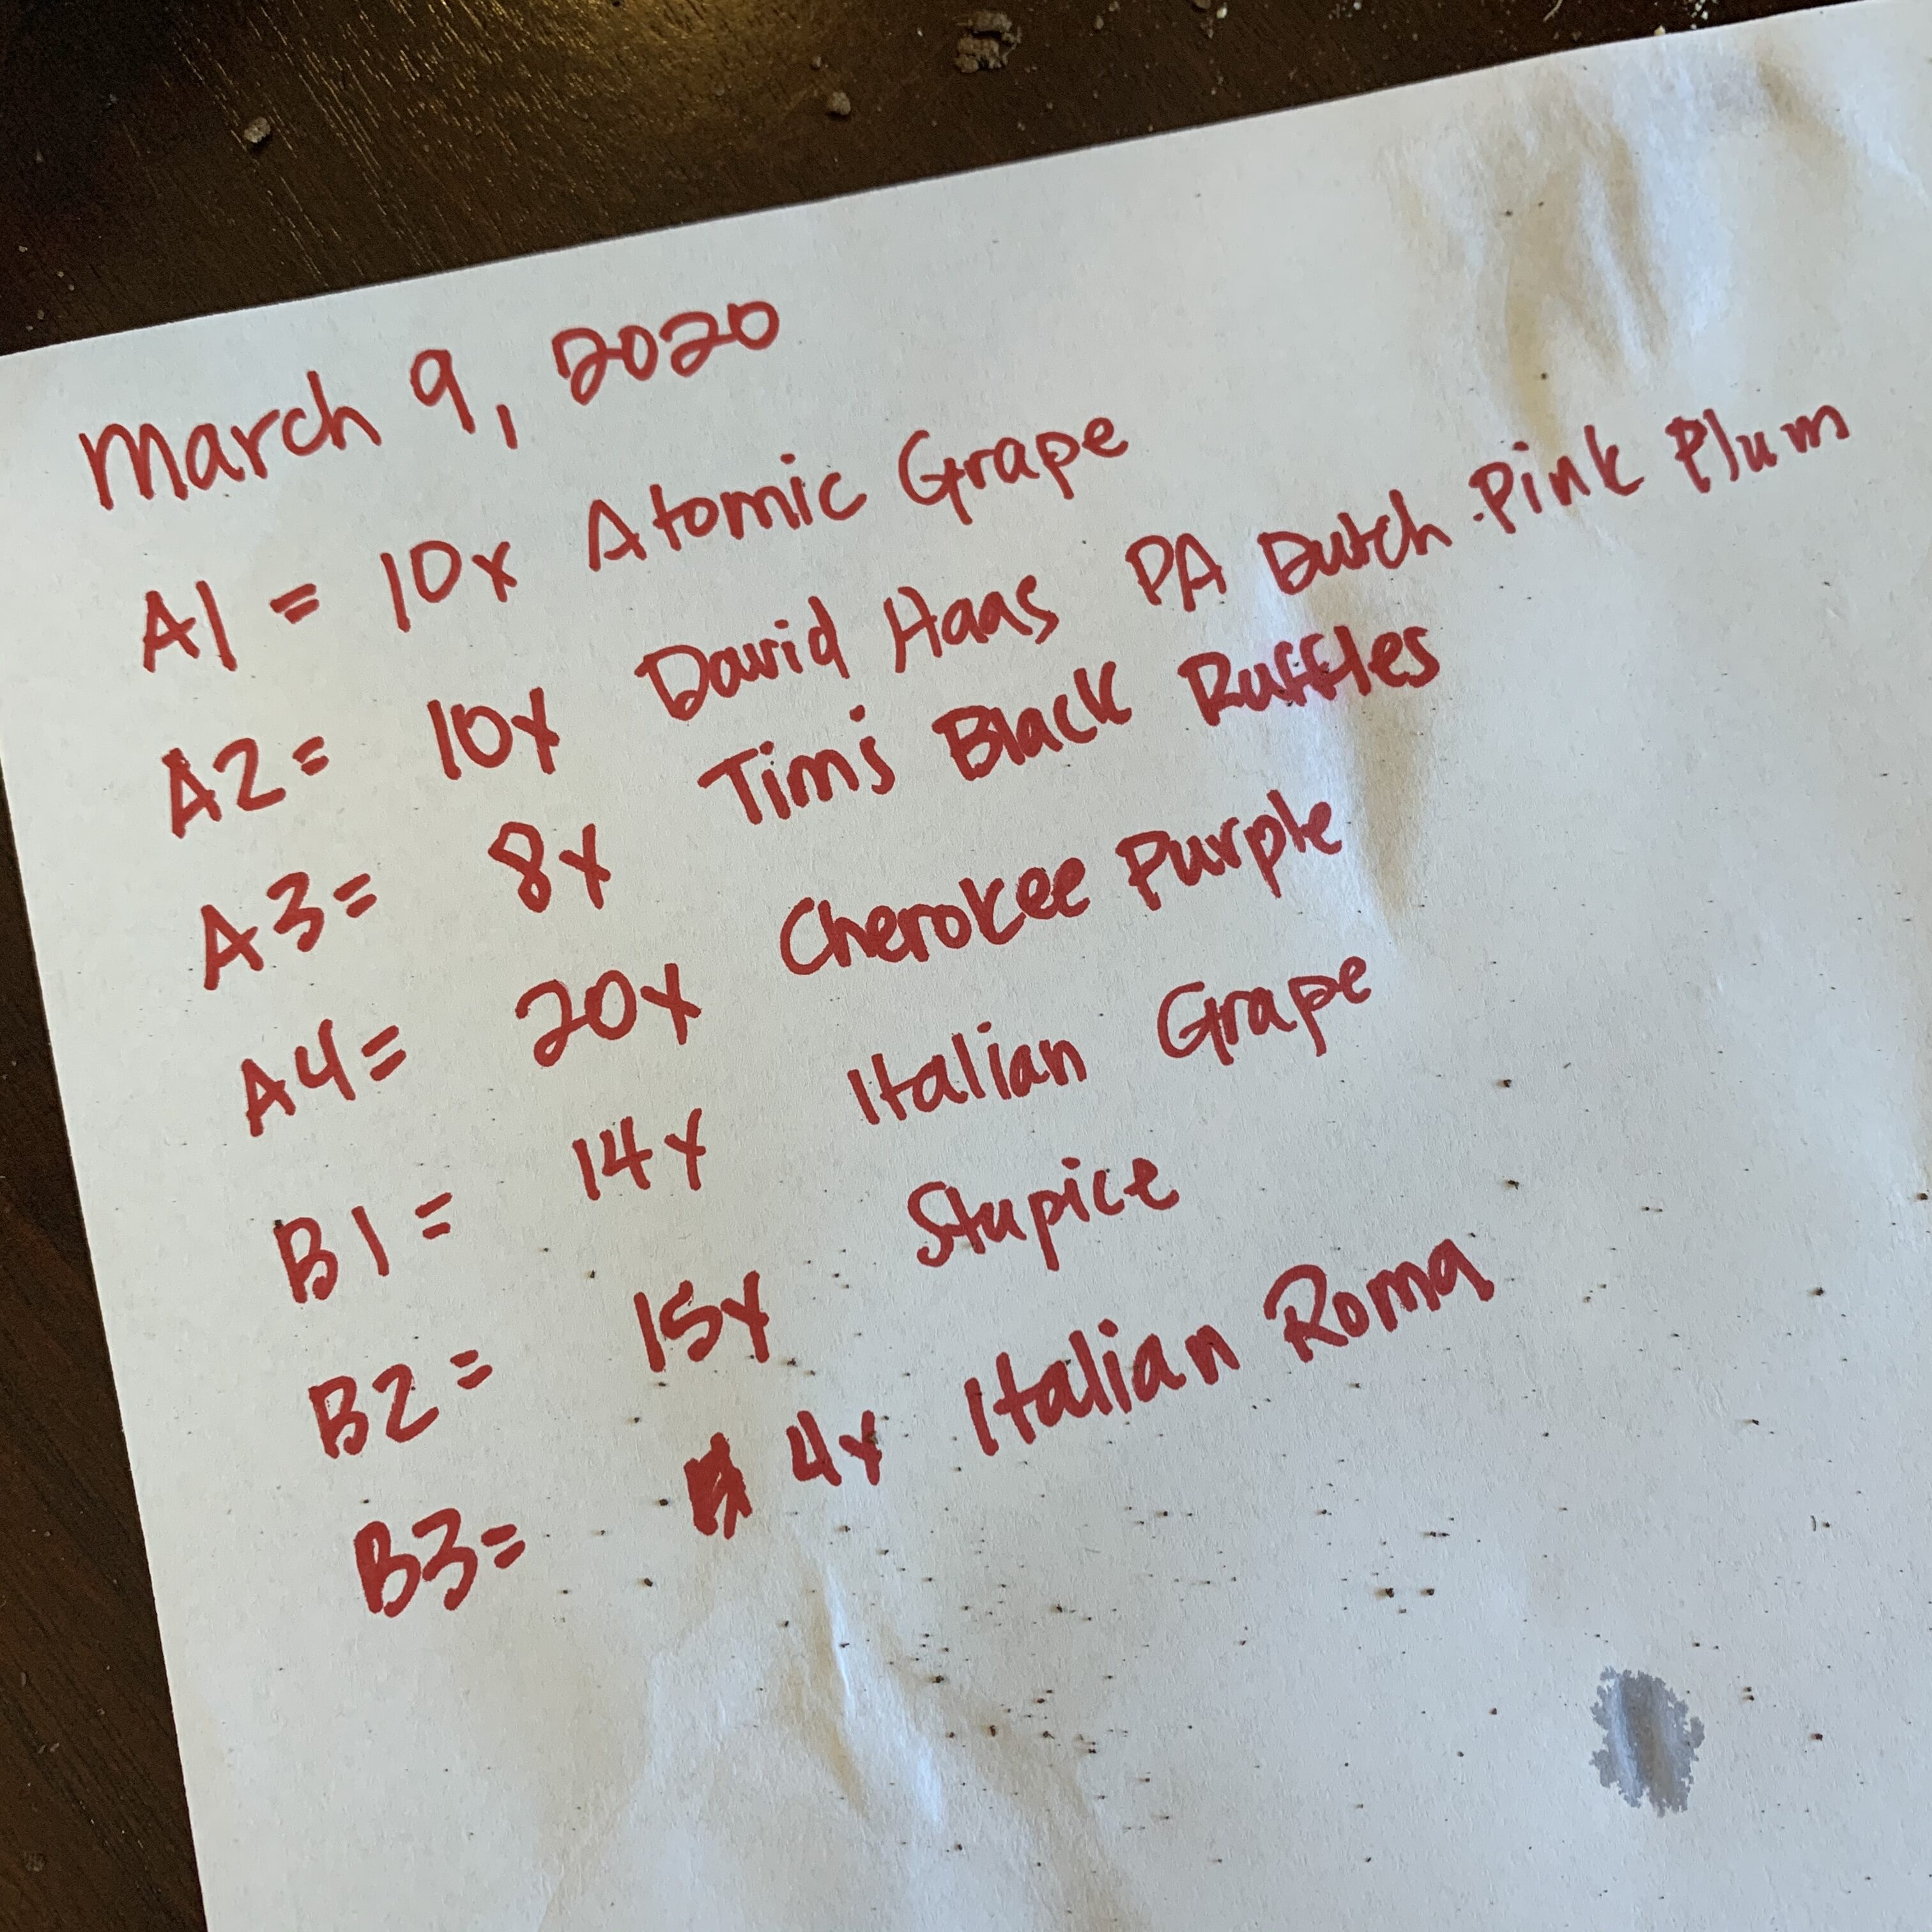 March 9, 2020
A1 = 10x Atomic Grape
A2 = 10x David Haas PA Dutch Pink Plum
A3 = 8x Tim's Black Ruffles
A4 = 20x Cherokee Purple
B1 = 14x Italian Grape
B2 = 15x Stupice
B3 = 4x Italian Roma